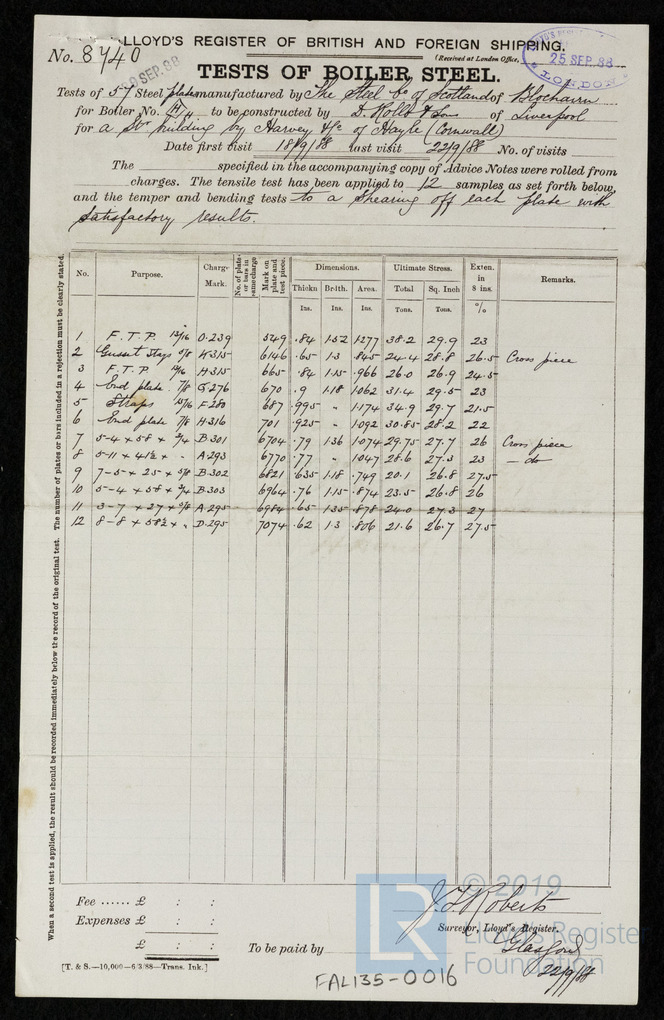 LLOYD'S REGISTER OF BRITISH AND FOREIGN SHIPPING.
No. 8740
(Received at London Office,
25 SEP. 88
LONDON
SEP. 88
TESTS OF BOILER STEEL.
Tests of 57 Steel plates manufactured by The Steel Co of Scotland of Blochairn
for Boiler No. to be constructed by D. Rollo & Son of Liverpool
for a Str building by Harvey & Co of Hayle (Cornwall)
Date first visit 18/9/88 last visit 22/9/88 No. of visits
The specified in the accompanying copy of Advice Notes were rolled from
charges. The tensile test has been applied to 12 samples as set forth below,
and the temper and bending tests to a shearing off each plate with
satisfactory results.
When a second test is applied, the result should be recorded immediately below the record of the original test. The number of plates or bars included in a rejection must be clearly stated.
No. Purpose. Charge Mark. No. of plates or bars in same charge Mark on plate and test piece. Dimensions. Ultimate Stress. Exten. in 8 ins. Remarks.
Thickn Brdth. Area. Total Sq. Inch
Ins. Ins. Ins. Tons. Tons. %
1 F.T.P. 13/16 O.239 5249 .84 1.52 1.277 38.2 29.9 23
2 Gusset Stays 5/8 K315 6146 .65 1.3 .845 24.4 28.8 26.5 Cross piece
3 F.T.P 13/16 H315 665 .84 1.15 .966 26.0 26.9 24.5
4 End plate 7/8 G276 670 .9 1.18 1.062 31.4 29.5 23
5 Straps 15/16 F280 687 .995 " 1.174 34.9 29.7 21.5
6 End plate 7/8 H316 701 .925 " 1.092 30.85 28.2 22
7 5-4 x 58 x 3/4 B.301 6704 .79 1.36 1.074 29.75 27.7 26 Cross piece
8 5-11 x 41½ x " A.293 6770 .77 " 1.047 28.6 27.3 23 — do
9 7-5 x 25 x 5/8 B.302 6821 .635 1.18 .749 20.1 26.8 27.5
10 5-4 x 58 x 3/4 B.303 6964 .76 1.15 .874 23.5 26.8 26
11 3-7 x 27 x 5/8 A.295 6984 .65 1.35 .878 24.0 27.3 27
12 8-8 x 58½ x " D.295 7074 .62 1.3 .806 21.6 26.7 27.5
Fee ...... £ : :
Expenses £ : :
£ : :
J. F. Roberts
Surveyor, Lloyd's Register.
To be paid by
Glasgow
22/9/88
[T. & S.—10,000—6/3/88—Trans. Ink.]
FAL135-0016
LR
© 2019
Lloyd's Register
Foundation